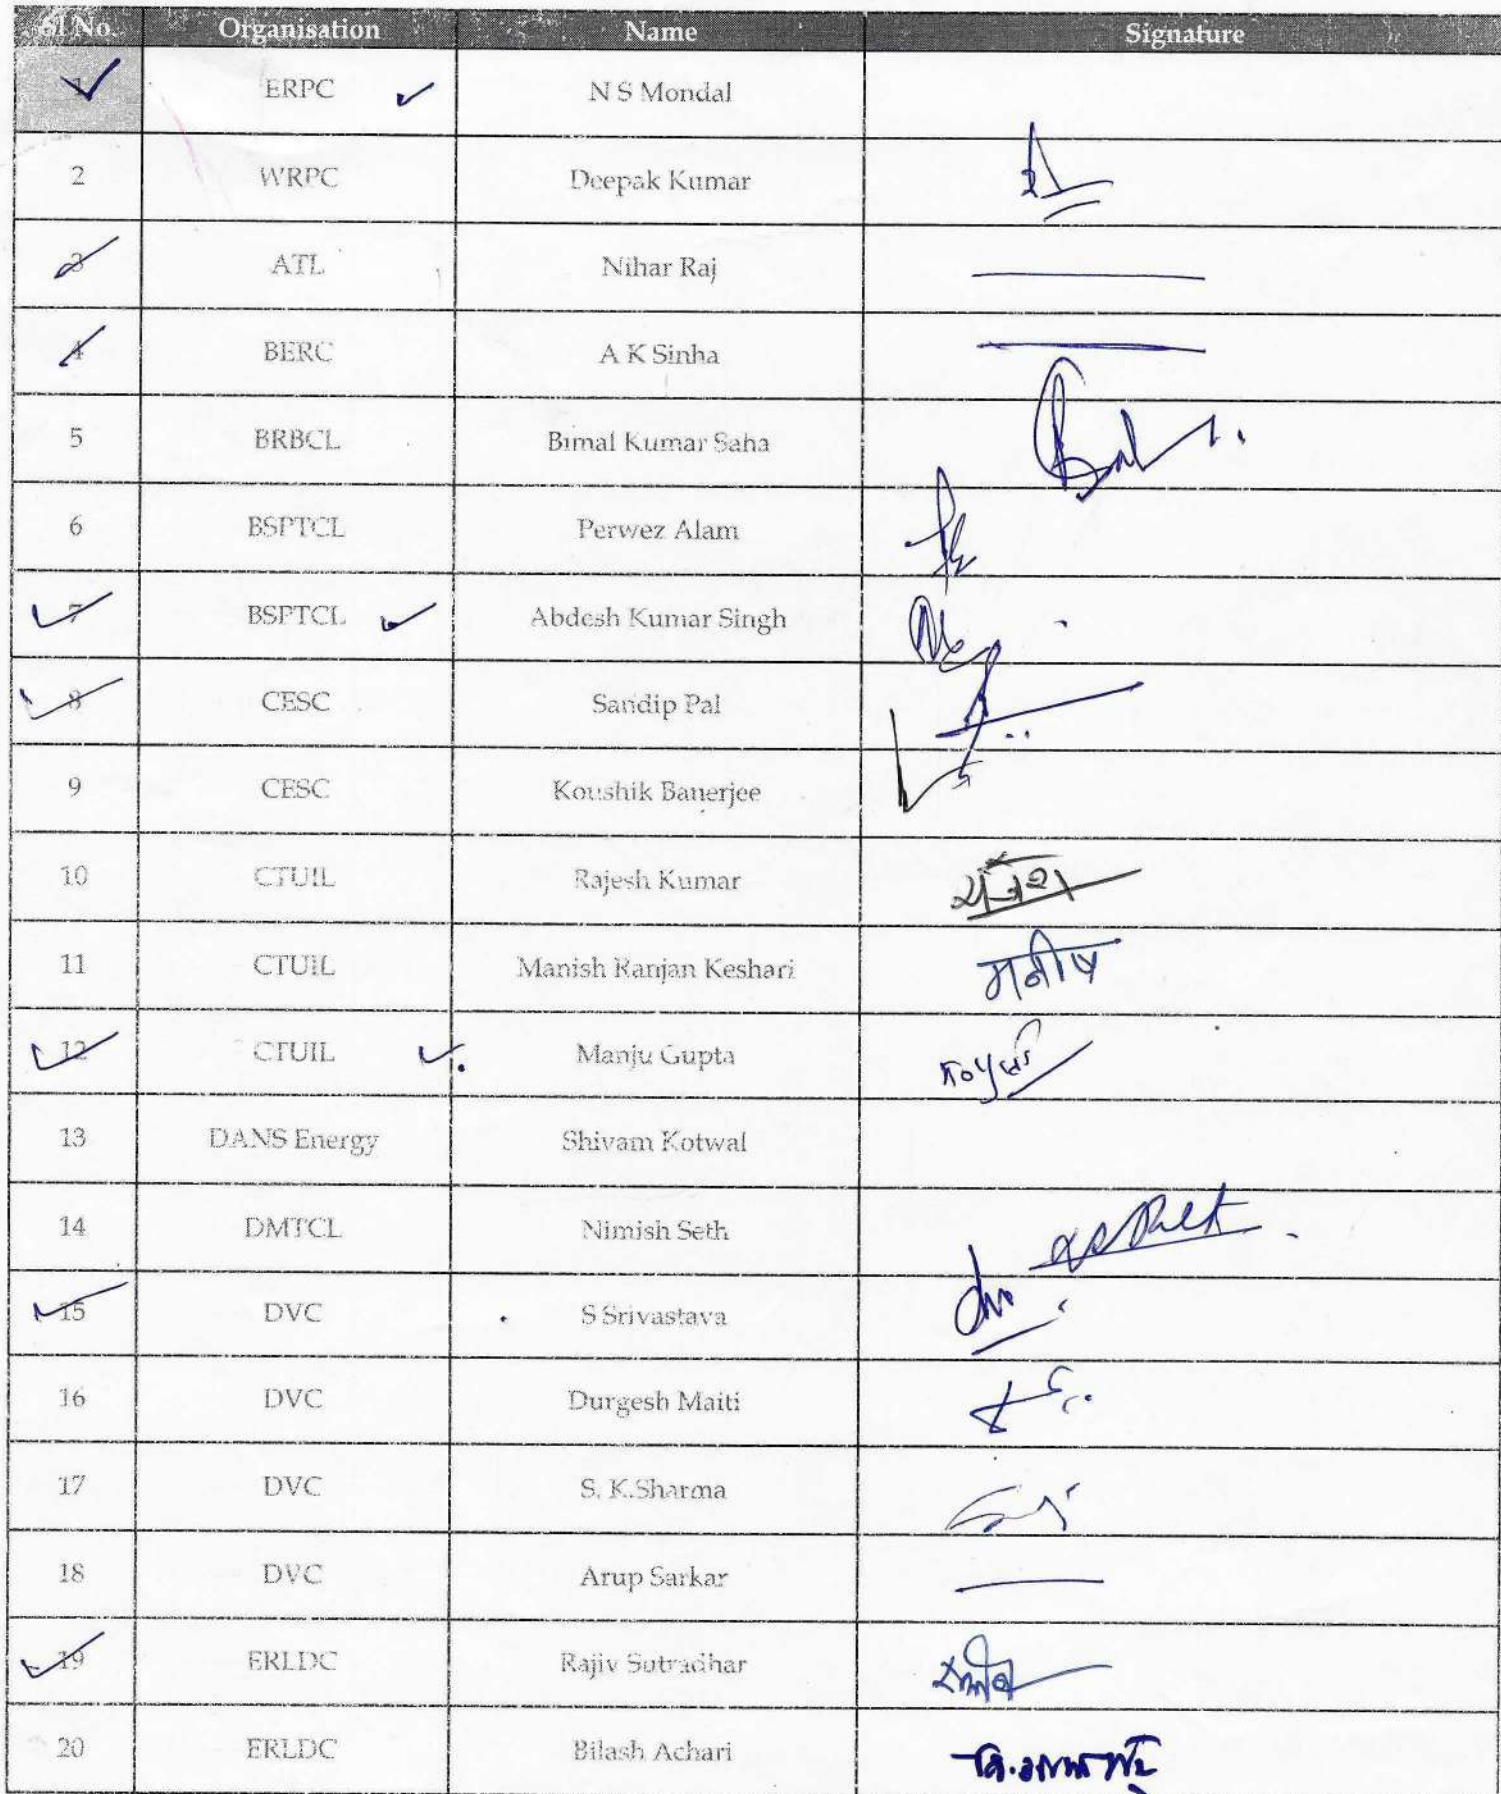 Sl No. Organisation Name Signature
1 ERPC N S Mondal
2 WRPC Deepak Kumar
3 ATL Nihar Raj
4 BERC A K Sinha
5 BRBCL Bimal Kumar Saha
6 BSPTCL Perwez Alam
7 BSPTCL Abdesh Kumar Singh
8 CESC Sandip Pal
9 CESC Koushik Banerjee
10 CTUIL Rajesh Kumar
11 CTUIL Manish Ranjan Keshari मनीष
12 CTUIL Manju Gupta
13 DANS Energy Shivam Kotwal
14 DMTCL Nimish Seth
15 DVC S Srivastava
16 DVC Durgesh Maiti
17 DVC S. K.Sharma
18 DVC Arup Sarkar
19 ERLDC Rajiv Sutradhar
20 ERLDC Bilash Achari